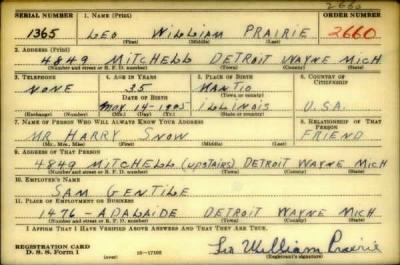 2660
SERIAL NUMBER 1. NAME (Print) ORDER NUMBER
1365 LEO WILLIAM PRAIRIE 2660
(First) (Middle) (Last)
2. ADDRESS (Print)
4849 MITCHELL DETROIT WAYNE MICH
(Number and street or R. F. D. number) (Town) (County) (State)
3. TELEPHONE 4. AGE IN YEARS 5. PLACE OF BIRTH 6. COUNTRY OF CITIZENSHIP
NONE 35 MANTIO
DATE OF BIRTH (Town or county)
MAY 14-1905 ILLINOIS U.S.A.
(Exchange) (Number) (Mo.) (Day) (Yr.) (State or country)
7. NAME OF PERSON WHO WILL ALWAYS KNOW YOUR ADDRESS 8. RELATIONSHIP OF THAT PERSON
MR HARRY SNOW FRIEND
(Mr., Mrs., Miss) (First) (Middle) (Last)
9. ADDRESS OF THAT PERSON
4849 MITCHELL (upstairs) DETROIT WAYNE MICH
(Number and street or R. F. D. number) (Town) (County) (State)
10. EMPLOYER'S NAME
SAM GENTILE
11. PLACE OF EMPLOYMENT OR BUSINESS
1476 - ADALAIDE DETROIT WAYNE MICH
(Number and street or R. F. D. number) (Town) (County) (State)
I AFFIRM THAT I HAVE VERIFIED ABOVE ANSWERS AND THAT THEY ARE TRUE.
REGISTRATION CARD
D. S. S. Form 1 (over) 16-17105 Leo William Prairie
(Registrant's signature)